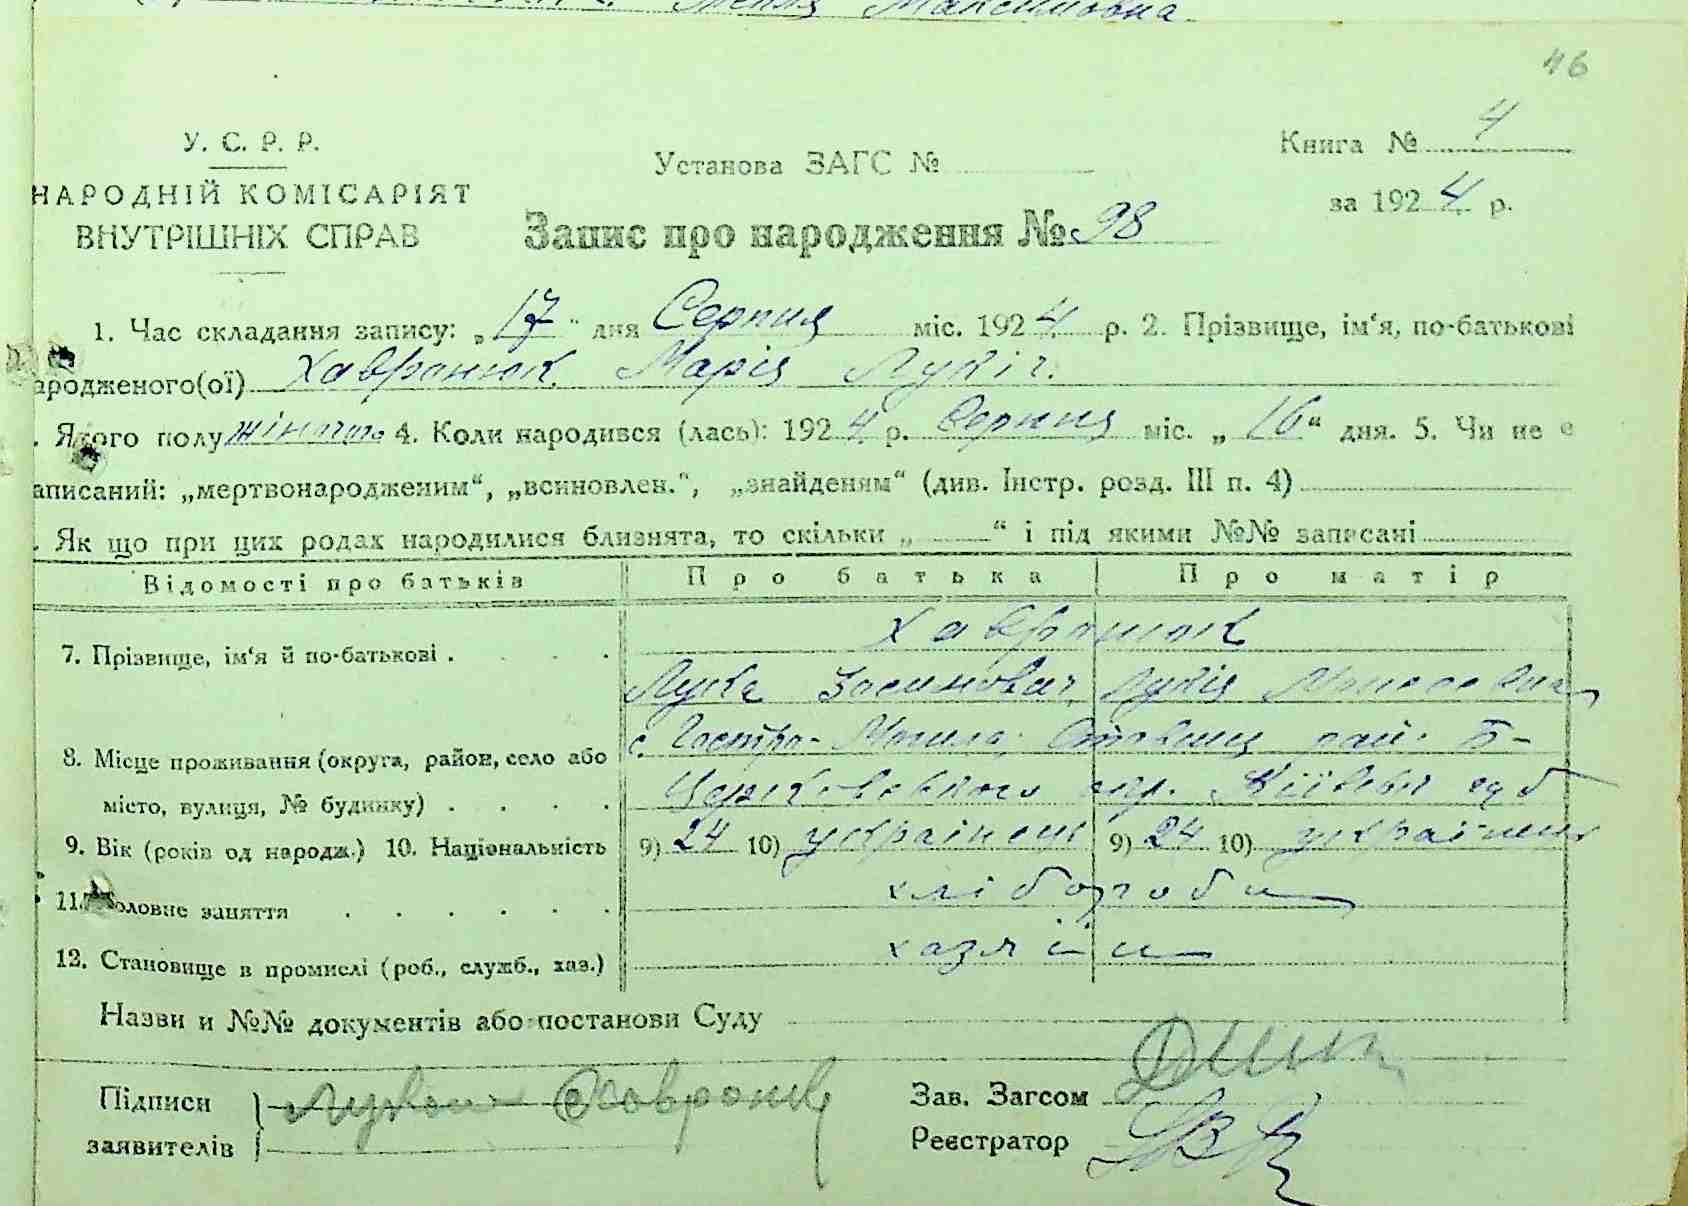 Максимовна.
46
У. С. Р. Р.
НАРОДНІЙ КОМІСАРІЯТ
ВНУТРІШНІХ СПРАВ
Установа ЗАГС №
Книга № 4
за 1924 р.
Запис про народження № 98
1. Час складання запису: „17" дня Серпня міс. 1924 р. 2. Прізвище, ім‘я, по-батькові
ародженого(ої) Хавронюк Марія Лукіч.
. Якого полу жіночого 4. Коли народився (лась): 1924 р. Серпня міс. „16“ дня. 5. Чи не є
аписаний: „мертвонародженим“, „всиновлен.“, „знайденям“ (див. Інстр. розд. III п. 4)
. Як що при цих родах народилися близнята, то скільки „ “ і під якими №№ записані
Відомості про батьків Про батька Про матір
7. Прізвище, ім‘я й по-батькові . . . . Хавронюк
Лука Лукія
8. Місце проживання (округа, район, село або с. Гостра-Могила, Ставищ. рай. Б-
місто, вулиця, № будинку) . . . . Церковського окр. Київськ губ
9. Вік (років од народж.) 10. Національність 9) 24 10) українець 9) 24 10) українка
11. Головне заняття . . . . . . хлібороби
12. Становище в промислі (роб., служб., хаз.) хазяїи
Назви и №№ документів або постанови Суду
Підписи Хавронюк Зав. Загсом
заявителів Реєстратор